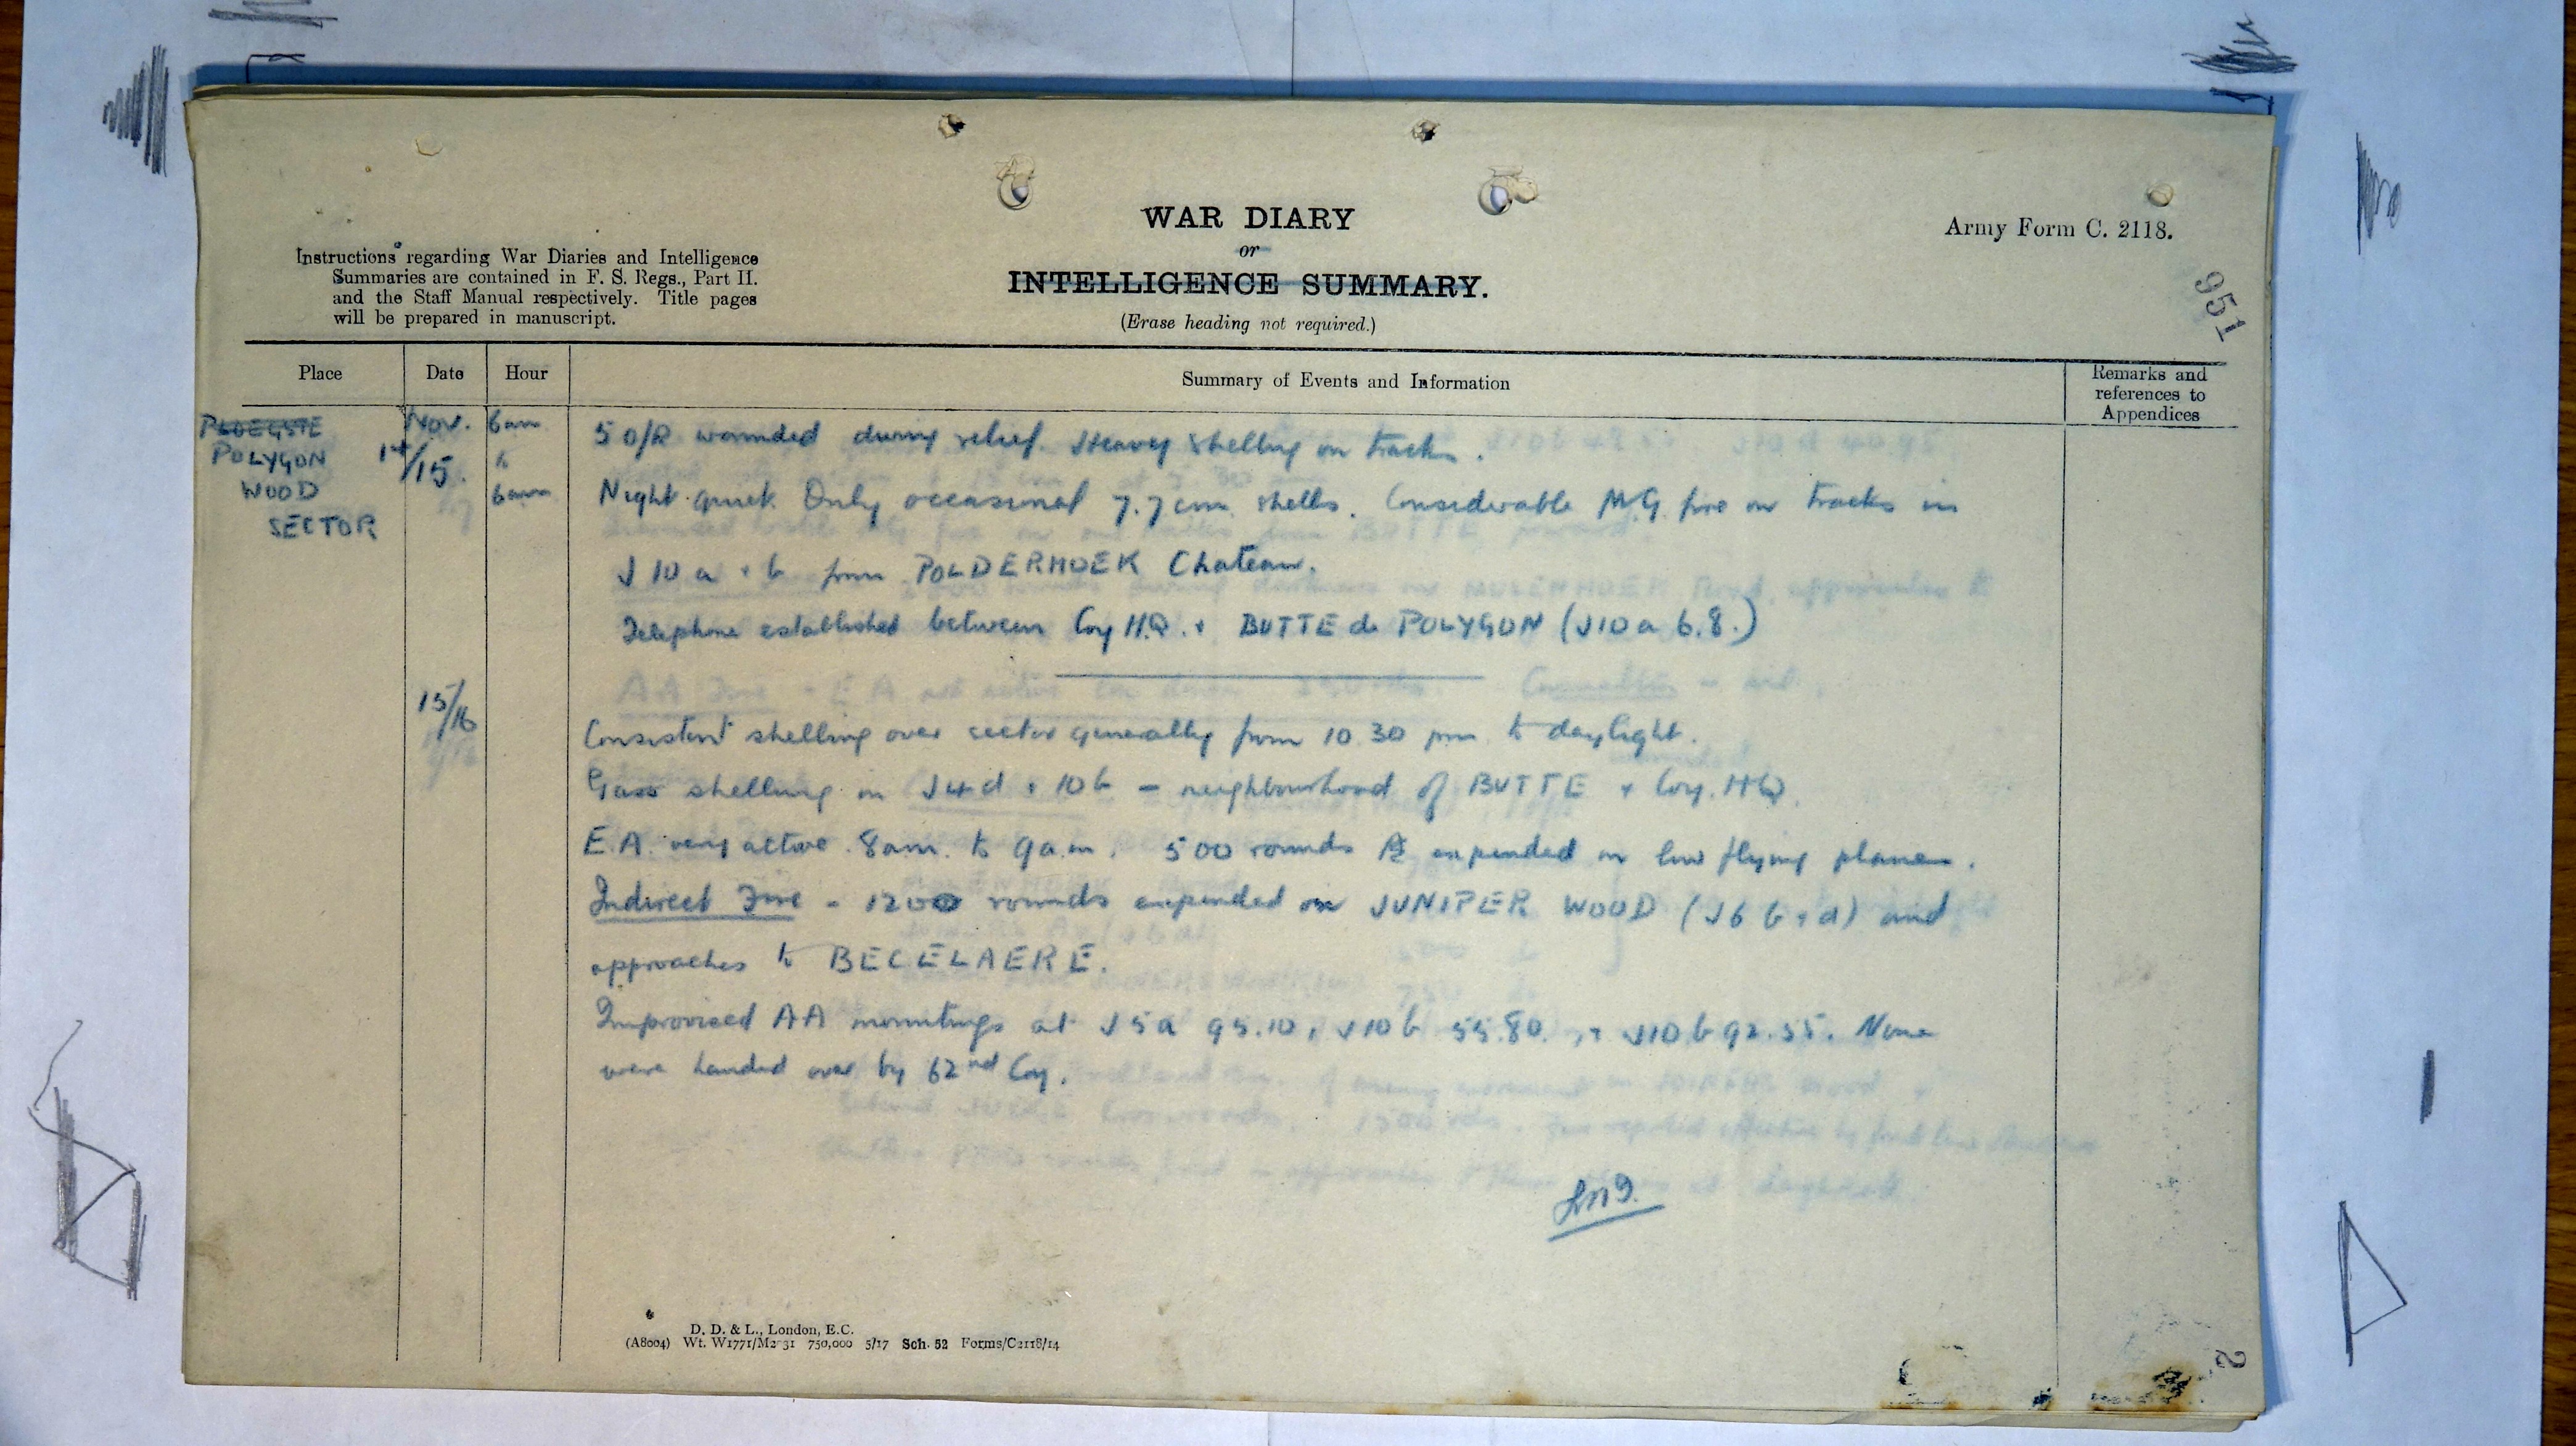 WAR DIARY
or
INTELLIGENCE SUMMARY.
(Erase heading not required.)
Army Form C. 2118.
Instructions regarding War Diaries and Intelligence
Summaries are contained in F. S. Regs., Part II.
and the Staff Manual respectively. Title pages
will be prepared in manuscript.
951
Place Date Hour Summary of Events and Information Remarks and references to Appendices
PLOEGSTE Nov. 6am 5 O/R wounded during relief. Heavy shelling on tracks.
POLYGON 14/15. to
WOOD 6am Night quiet. Only occasional 7.7cm shells. Considerable M.G. fire on tracks in
SECTOR
J 10 a + b from POLDERHOEK Chateau.
Telephone established between Coy H.Q. + BUTTE de POLYGON (J10 a 6.8.)
15/16
Consistent shelling over sector generally from 10.30 pm to daylight.
Gas shelling in J4d + 10b - neighbourhood of BUTTE + Coy. HQ.
E.A. very active 8am. to 9a.m. 500 rounds expended on low flying planes.
Indirect Fire - 1200 rounds expended on JUNIPER WOOD (J6 b + d) and
approaches to BECELAERE.
Improvised AA mountings at J5a 95.10, J10b 55.80., + J10b 92.55. None
were handed over by 62nd Coy.
D. D. & L., London, E.C.
(A8004) Wt. W1771/M2031 750,000 5/17 Sch. 52 Forms/C2118/14
2